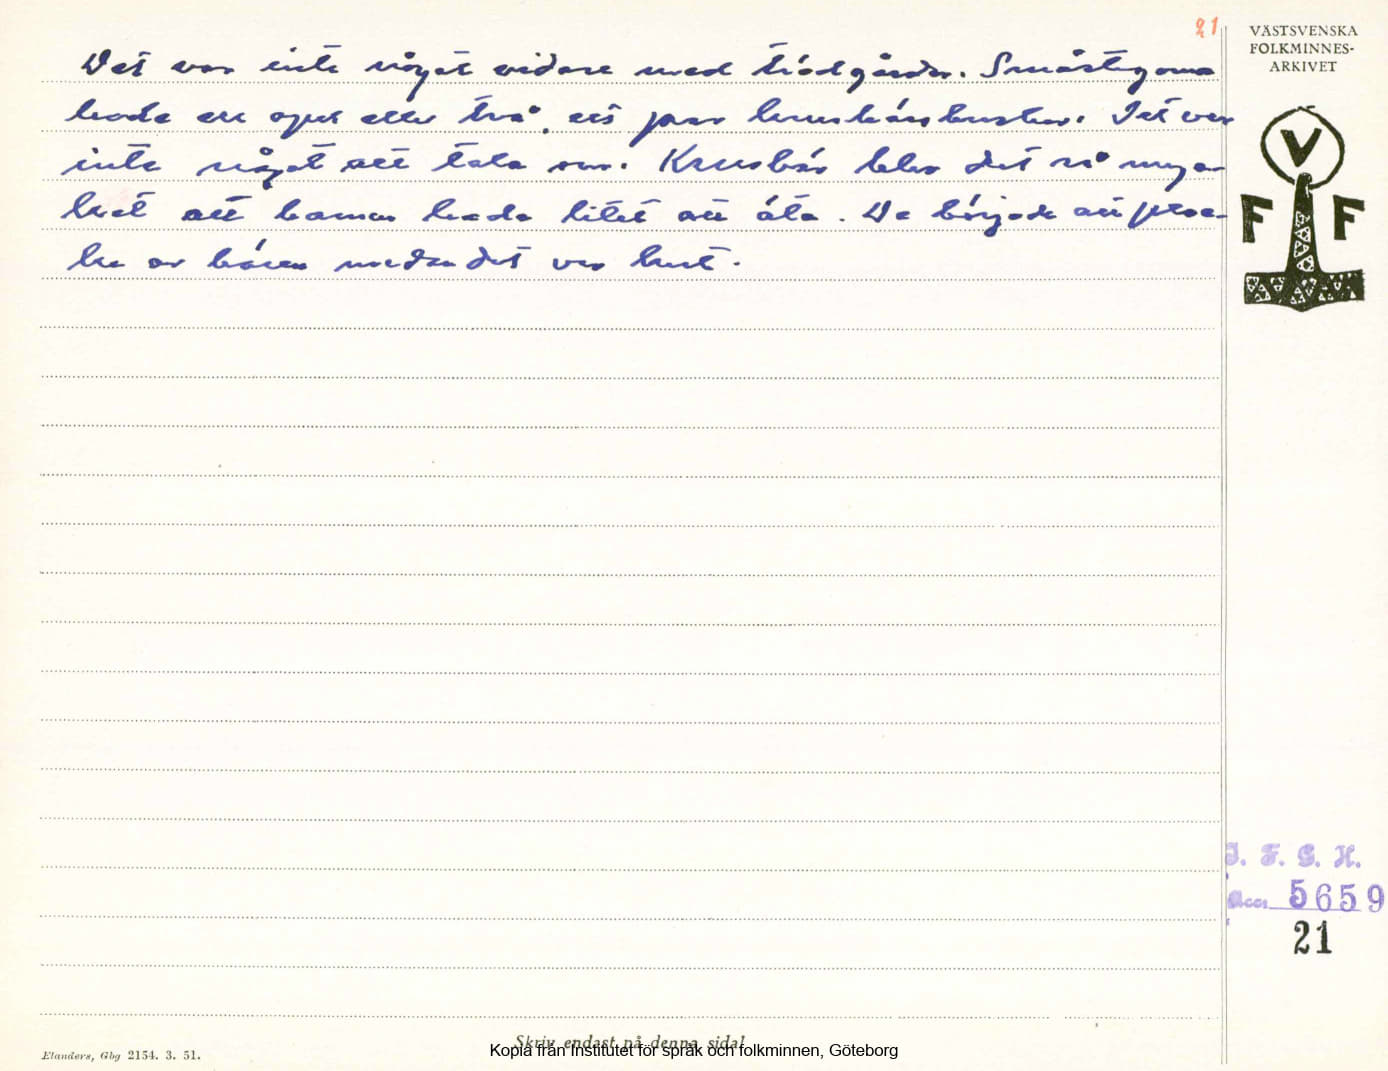 21
VÄSTSVENSKA
FOLKMINNES-
ARKIVET
Det var inte något vidare med trädgårdar. Småstugorna
hade en apel eller två, ett par krusbärsbuskar. Det var
inte något att tala om. Krusbär blev det så myc-
ket att barnen hade litet att äta. De började att ploc-
ka av bären medan det var kart.
V
F F
I. F. G. H.
Acc. 5659
21
Skriv endast på denna sida!
Elanders, Gbg 2154. 3. 51.
Kopia från Institutet för språk och folkminnen, Göteborg